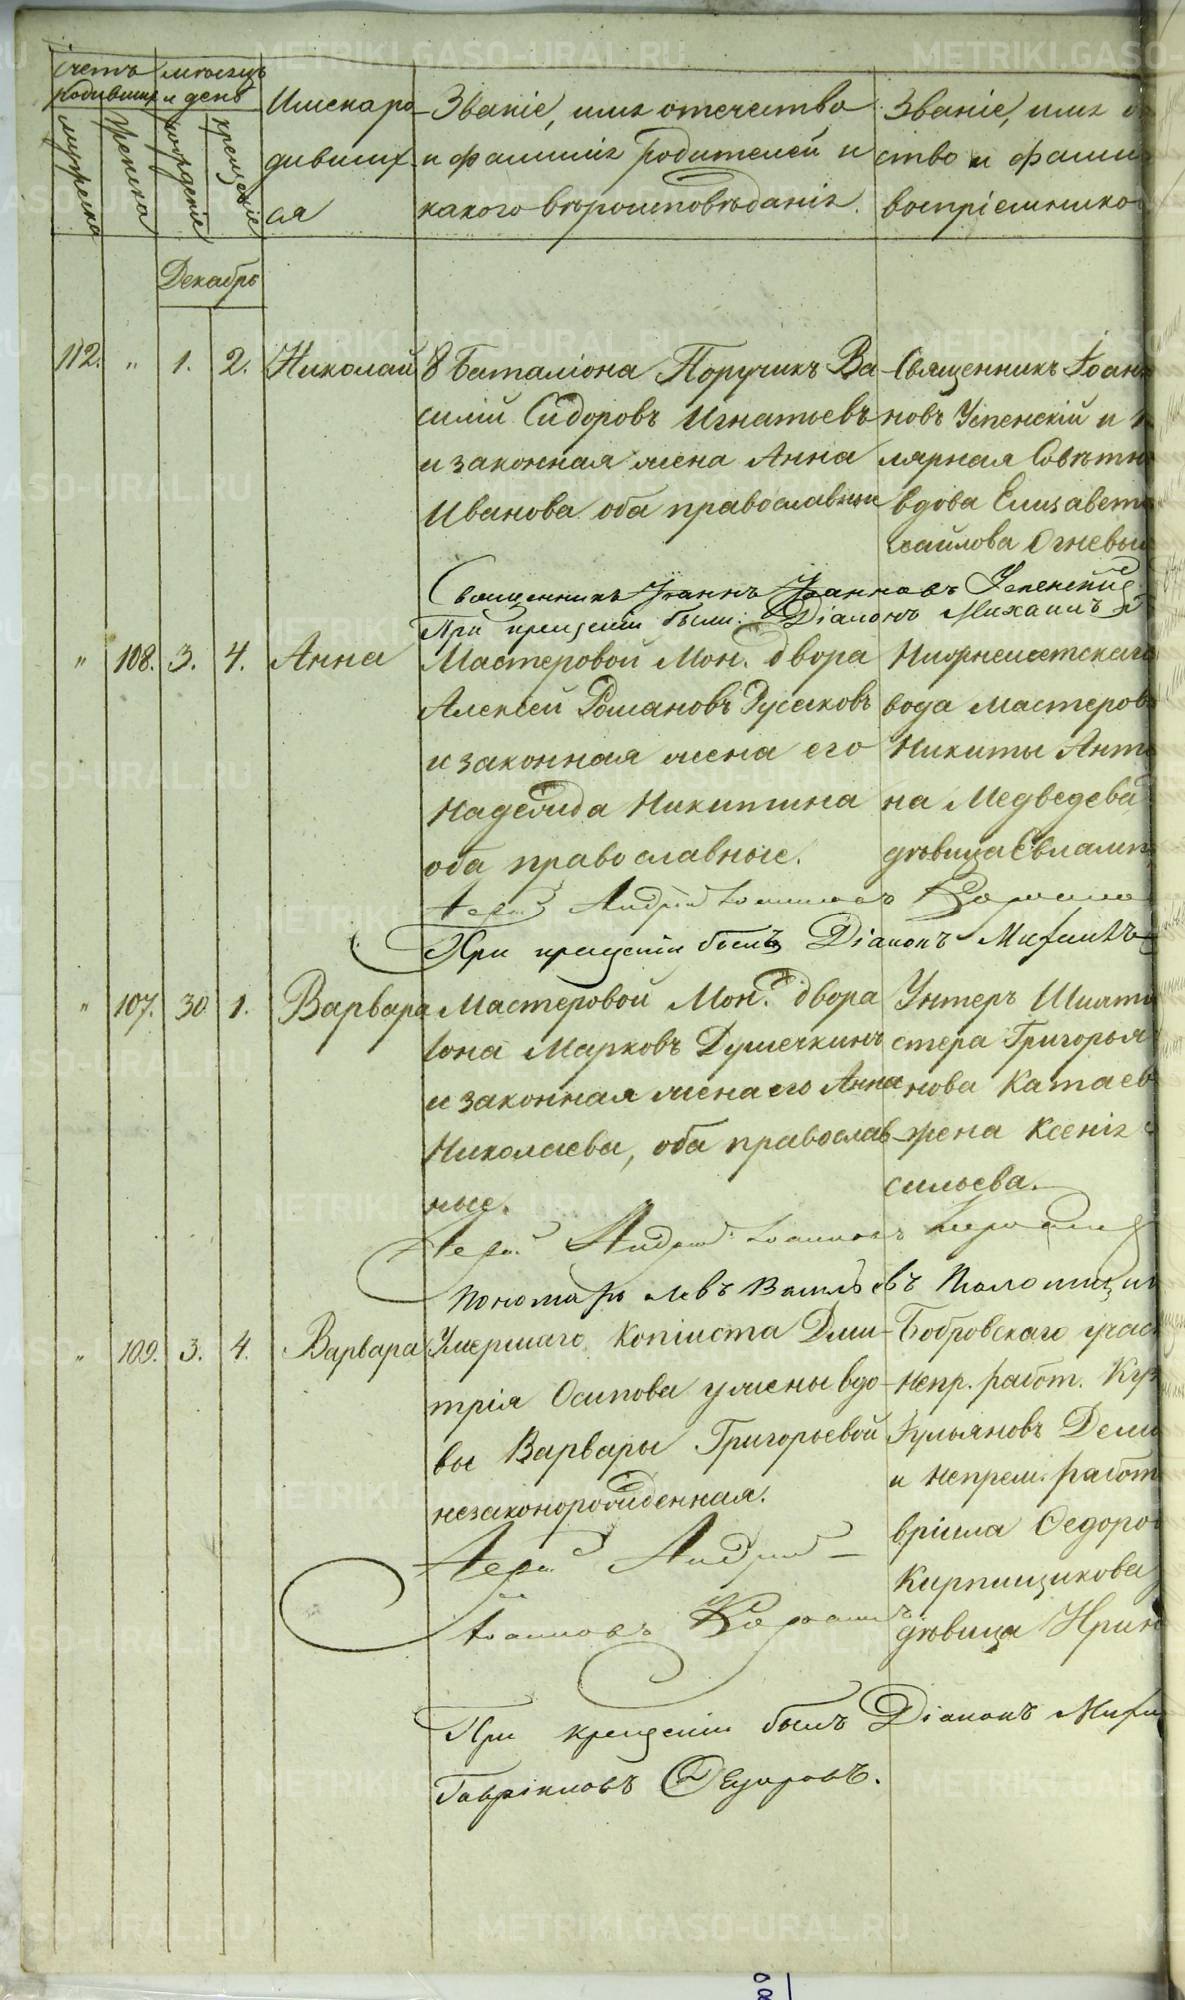 счетъ родившихся
мѣсяцъ и день
мужеска
женска
рожденіе
крещеніе
Имена ро-
дившихъ-
ся
Званіе, имя отечество
и фамилія родителей и
какого вѣроисповѣданія.
Званіе, имя
ство и фами
воспріемнико
Декабрь
112. " 1. 2. Николай
8 Баталіона Поручикъ Ва-
силій Сидоровъ Игнатьевъ
и законная жена Анна
Иванова оба православные
Священникъ Іоан
новъ Успенскій и
лярная Совѣтн
вдова Елизавет
хайлова Огневы
Священникъ Іоаннъ Іоанновъ Успенскій
При крещеніи былъ Діаконъ Михаилъ
" 108. 3. 4. Анна
Мастеровой Мон. двора
Алексей Романовъ Русаковъ
и законная жена его
Надежда Никитина
оба православные.
Нижнеисетскаго
вода мастеров
Никиты Ант
на Медведева
дѣвица Евламп
Іерей Андрей Іоанновъ
При крещеніи былъ Діаконъ Михаилъ
" 107. 30 1. Варвара
Мастеровой Мон. двора
Іона Марковъ Душечкинъ
и законная жена его Анна
Николаева, оба православ-
ные.
Унтеръ Шихтм
стера Григорья
нова Катаев
жена Ксенія
сильева.
Іерей Андрей Іоанновъ
Пономарь Левъ Васильевъ
" 109. 3. 4. Варвара
Умершаго Копіиста Дми-
трія Осипова у жены вдо-
вы Варвары Григорьевой
незаконорожденная.
Бобровскаго учас
непр. работ. Куз
Ульяновъ Деми
и непрем. работ
вріила Федоро
Кирпищикова
дѣвица Ирин
Іерей Андрей
Іоанновъ
При крещеніи былъ Діаконъ Миха
Гавріиловъ Ѳедоровъ.